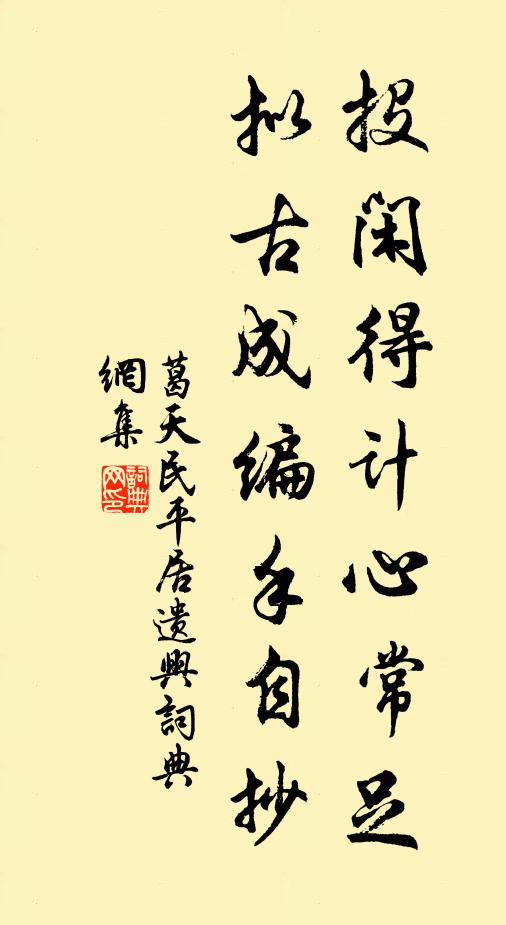 投闲得计心常足
拟古成编手自抄
葛天民平居遣興詞典
網集
詞典網印